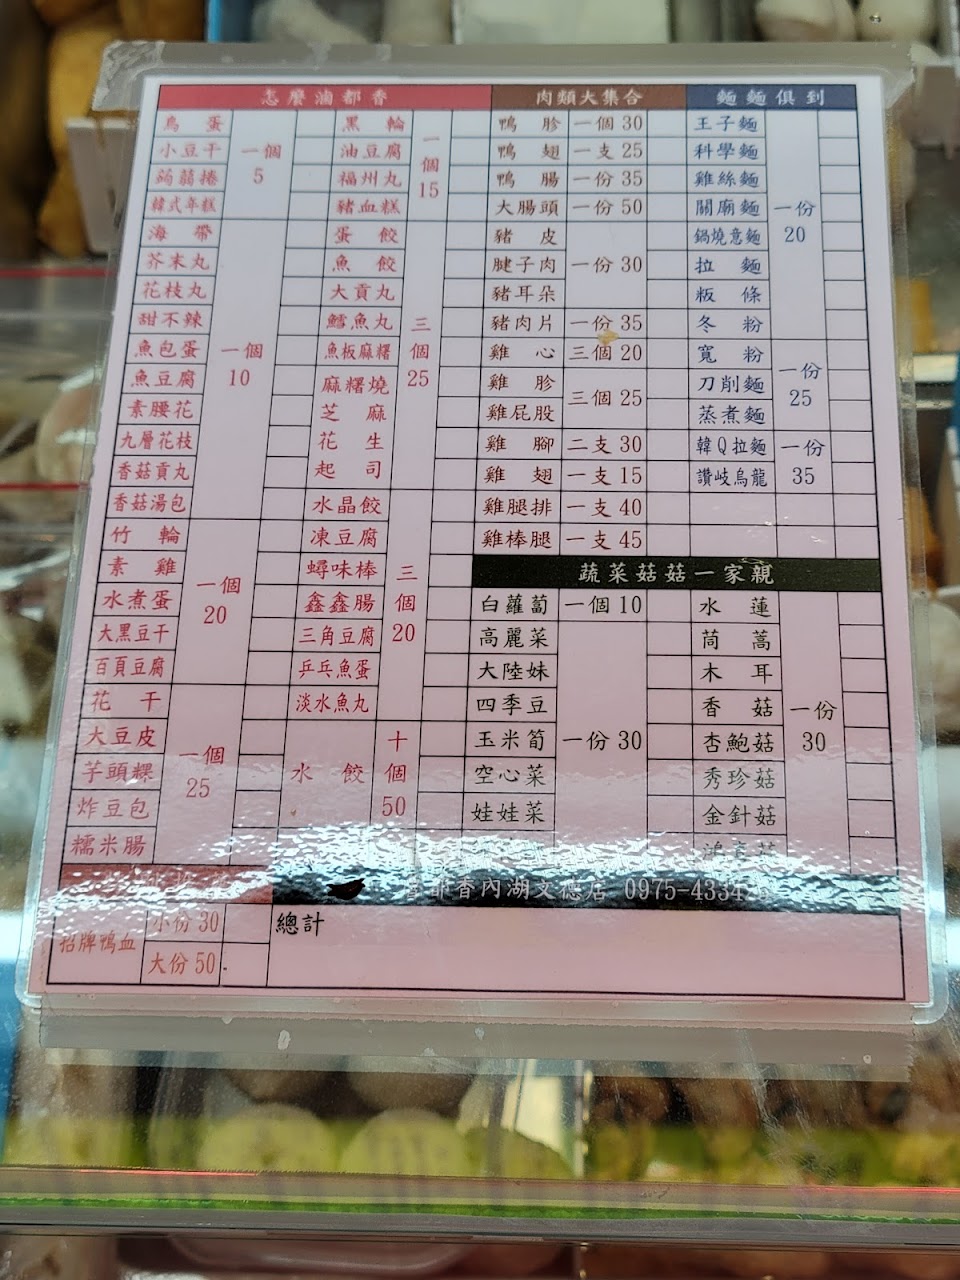 怎麼滷都香
鳥蛋
小豆干
蒟蒻捲
韓式年糕
一個
5
海帶
芥末丸
花枝丸
甜不辣
魚包蛋
魚豆腐
素腰花
九層花枝
香菇貢丸
香菇湯包
一個
10
竹輪
素雞
水煮蛋
大黑豆干
百頁豆腐
一個
20
花干
大豆皮
芋頭粿
炸豆包
糯米腸
一個
25
黑輪
油豆腐
福州丸
豬血糕
一個
15
蛋餃
魚餃
大貢丸
鱈魚丸
魚板麻糬
麻糬燒
芝麻
花生
起司
三個
25
水晶餃
凍豆腐
蟳味棒
鑫鑫腸
三角豆腐
乒乓魚蛋
淡水魚丸
三個
20
水餃
十個
50
肉類大集合
鴨胗 一個 30
鴨翅 一支 25
鴨腸 一份 35
大腸頭 一份 50
豬皮
腱子肉
豬耳朵
一份 30
豬肉片 一份 35
雞心 三個 20
雞胗
雞屁股
三個 25
雞腳 二支 30
雞翅 一支 15
雞腿排 一支 40
雞棒腿 一支 45
麵麵俱到
王子麵
科學麵
雞絲麵
關廟麵
鍋燒意麵
拉麵
粄條
冬粉
一份
20
寬粉
刀削麵
蒸煮麵
一份
25
韓Q拉麵
讚岐烏龍
一份
35
蔬菜菇菇一家親
白蘿蔔 一個 10
高麗菜
大陸妹
四季豆
玉米筍
空心菜
娃娃菜
一份 30
水蓮
茼蒿
木耳
香菇
杏鮑菇
秀珍菇
金針菇
一份
30
都香內湖文德店 0975-433
招牌鴨血
小份 30
大份 50
總計